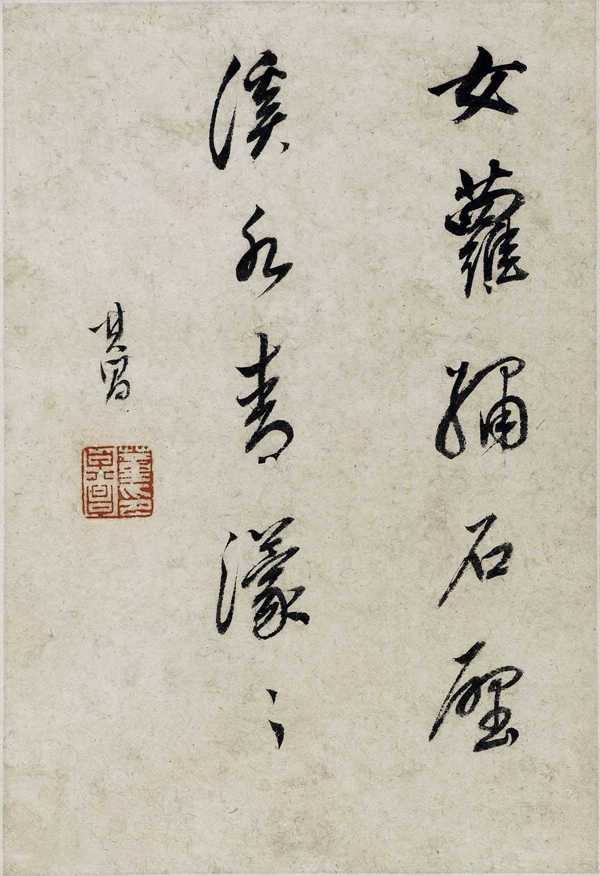 女蘿繡石壁
溪水青濛〻
其昌
董印其昌